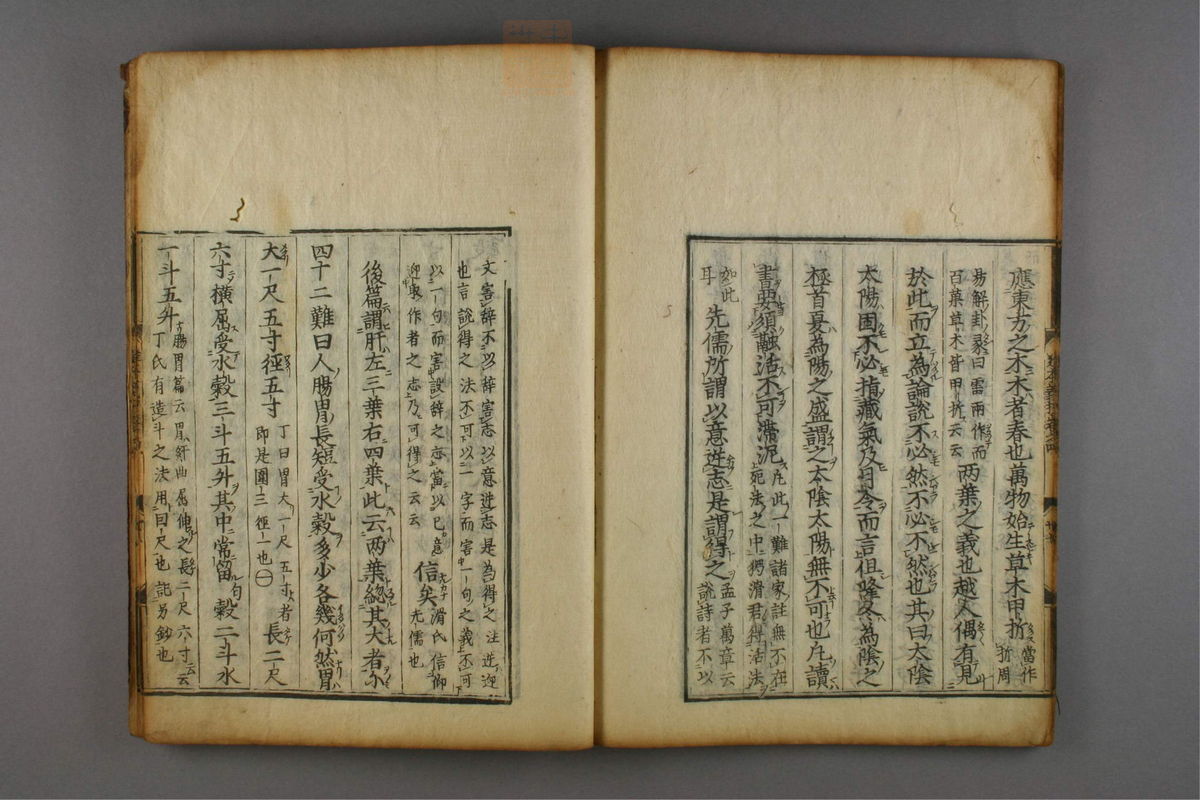 應東方之木木者春也萬物始生草木甲拆當作
拆周
易解卦彖曰雷雨作而
百菓草木皆甲拆云云
兩葉之義也越人偶有見
於此而立為論說不必然不必不然也其曰太陰
太陽固不必指藏氣乃月令而言但隆冬為陰之
極首夏為陽之盛謂之太陰太陽無不可也凡讀
書要須融活不可滯泥
凡此一難諸家註無不在
死法之中獨滑君得活法
如此
耳
先儒所謂以意逆志是謂得之
孟子萬章云
說詩者不以
文害辞不以辞害志以意逆志是為得之注逆迎
也言說得之法不可以一字而害一句之義不可
以一句而害設辞之志當以己意
迎取作者之志乃可得之云云
信矣
滑氏信仰
先儒也
後篇謂肝左三葉右四葉此云两葉總其大者尓
四十二難曰人腸胃長短受水穀多少各幾何然胃
大一尺五寸徑五寸
丁曰胃大一尺五寸者
即是圍三徑一也
長二尺
六寸橫屈受水穀三斗五升其中常留穀二斗水
一斗五升
腸胃篇云胃紆曲屈伸之長二尺六寸云云
丁氏有造斗之法用曰尺也記另鈔也